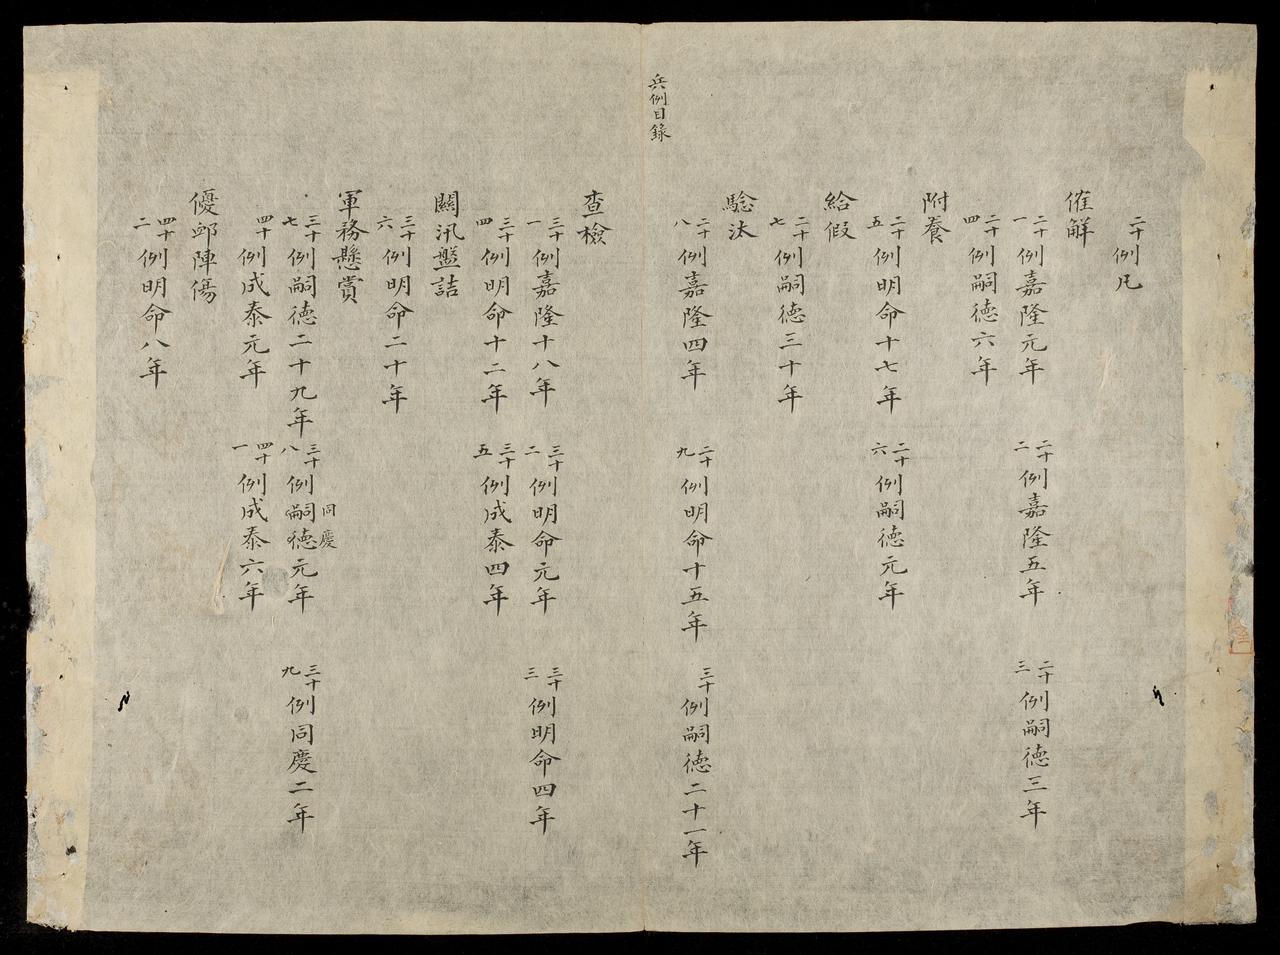 二十例凡
催解
二十一例嘉隆元年
二十二例嘉隆五年
二十三例嗣徳三年
二十四例嗣徳六年
附養
二十五例明命十七年
二十六例嗣徳元年
給假
二十七例嗣徳三十年
驗汰
二十八例嘉隆四年
二十九例明命十五年
三十例嗣徳二十一年
兵例目錄
查檢
三十一例嘉隆十八年
三十二例明命元年
三十三例明命四年
三十四例明命十二年
三十五例成泰四年
關汛盤詰
三十六例明命二十年
軍務懸賞
三十七例嗣徳二十九年
三十八例嗣徳元年
同慶
三十九例同慶二年
四十例成泰元年
四十一例成泰六年
優卹陣傷
四十二例明命八年